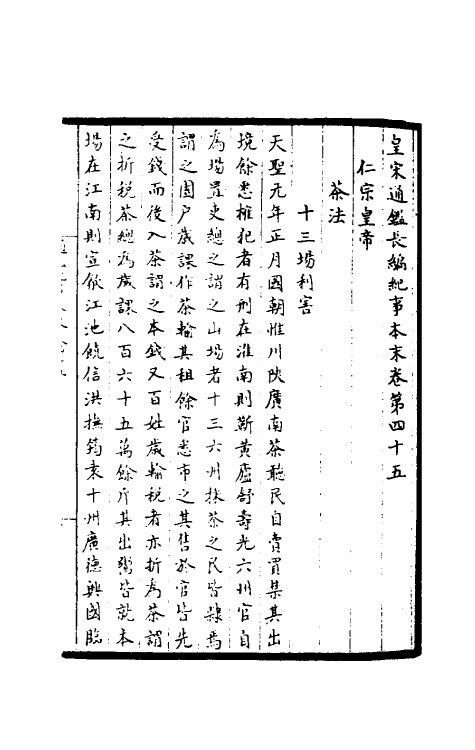 皇宋通鑑長編紀事本末卷第四十五
仁宗皇帝
茶法
十三場利害
天聖元年正月國朝惟川陝廣南茶聽民自賣買禁其出
境餘悉榷犯者有刑在淮南則蘄黃廬舒壽光六州官自
為場置吏總之謂之山場者十三六州採茶之民皆隸焉
謂之園户歲課作茶輸其租餘官悉市之其售於官皆先
受錢而後入茶謂之本錢又百姓歲輸稅者亦折為茶謂
之折稅茶總為歲課八百六十五萬餘斤其出鬻皆就本
場在江南則宣歙江池饒信洪撫筠袁十州廣德興國臨